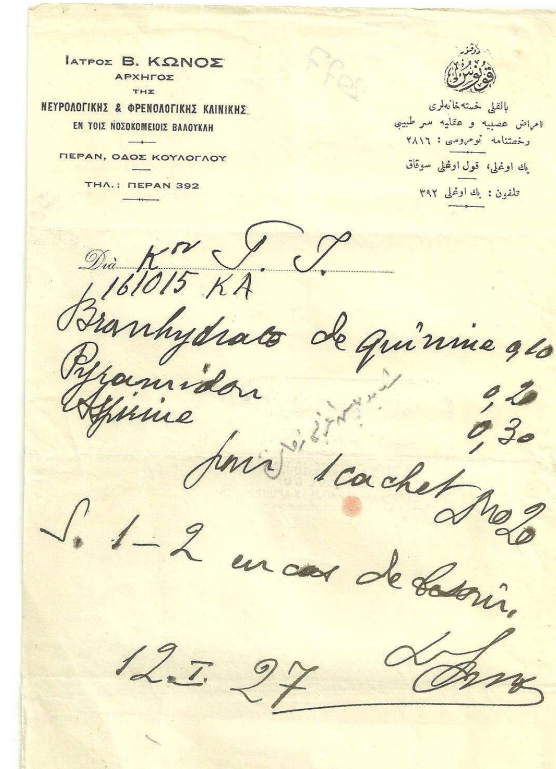 Ιατρος Β. ΚΩΝΟΣ
ΑΡΧΗΓΟΣ
ΤΗΣ
ΝΕΥΡΟΛΟΓΙΚΗΣ & ΦΡΕΝΟΛΟΓΙΚΗΣ ΚΛΙΝΙΚΗΣ
ΕΝ ΤΟΙΣ ΝΟΣΟΚΟΜΕΙΟΙΣ ΒΑΛΟΥΚΛΗ
ΠΕΡΑΝ, ΟΔΟΣ ΚΟΥΛΟΓΛΟΥ
ΤΗΛ.: ΠΕΡΑΝ 392
دوقتور
قونوس
بالقلی خسته خانه لری
امراض عصبیه و عقلیه سر طبیبی
رخصتنامه نومروسی : ٢٨١٦
بك اوغلی، قول اوغلی سوقاق
تلفون : بك اوغلی ٣٩٢
Διὰ Κον Τ. Τ.
161015 ΚΑ
Bromhydrate de quinine 0,10
Pyramidon 0,20
Aspirine 0,30
pour 1 cachet No 20
S. 1-2 en cas de besoin.
12.I.27